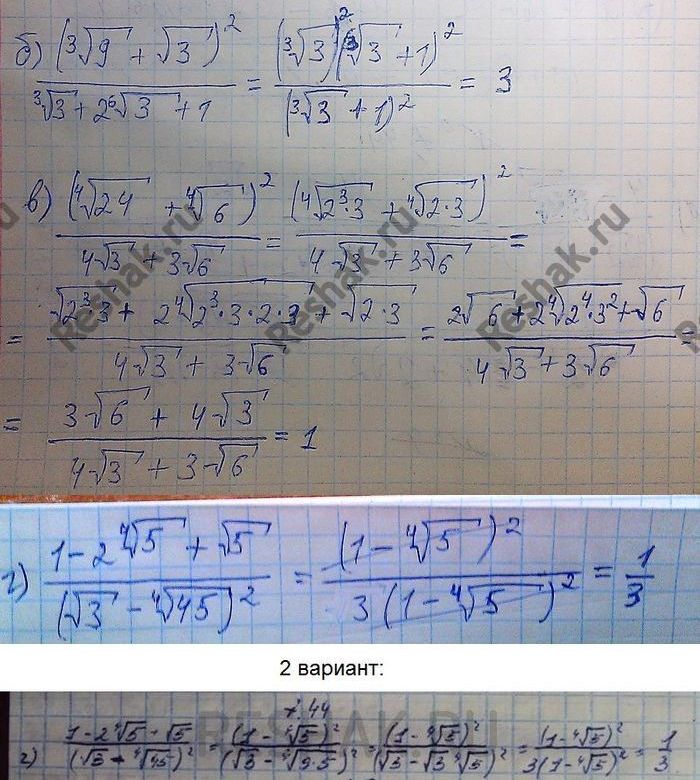 б) (³√9 + √3)² / (³√3 + 2⁶√3 + 1) = (³√3)²(⁶√3 + 1)² / (³√3 + 1)² = 3
в) (⁴√24 + ⁴√6)² / (4√3 + 3√6) = (⁴√(2³·3) + ⁴√(2·3))² / (4√3 + 3√6) =
= (√(2³·3) + 2⁴√(2³·3·2·3) + √(2·3)) / (4√3 + 3√6) = (2√6 + 2⁴√(2⁴·3²) + √6) / (4√3 + 3√6) =
= (3√6 + 4√3) / (4√3 + 3√6) = 1
г) (1 - 2⁴√5 + √5) / (√3 - ⁴√45)² = (1 - ⁴√5)² / 3(1 - ⁴√5)² = 1/3
2 вариант:
7.44
г) (1 - 2⁴√5 + √5) / (√3 - ⁴√45)² = (1 - ⁴√5)² / (√3 - ⁴√(9·5))² = (1 - ⁴√5)² / (√3 - √3 ⁴√5)² = (1 - ⁴√5)² / 3(1 - ⁴√5)² = 1/3
Reshak.ru
Reshak.ru
Reshak.ru
RESHAK.RU